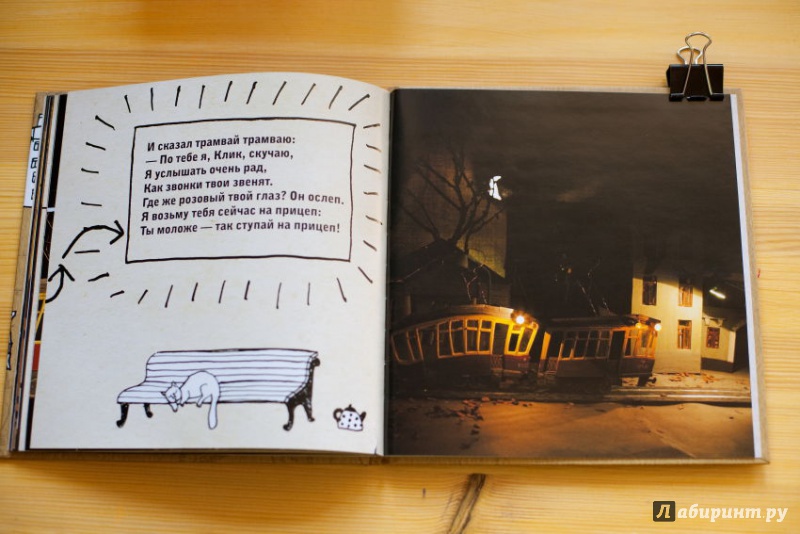 И сказал трамвай трамваю:
— По тебе я, Клик, скучаю,
Я услышать очень рад,
Как звонки твои звенят.
Где же розовый твой глаз? Он ослеп.
Я возьму тебя сейчас на прицеп:
Ты моложе — так ступай на прицеп!
Лабиринт.ру